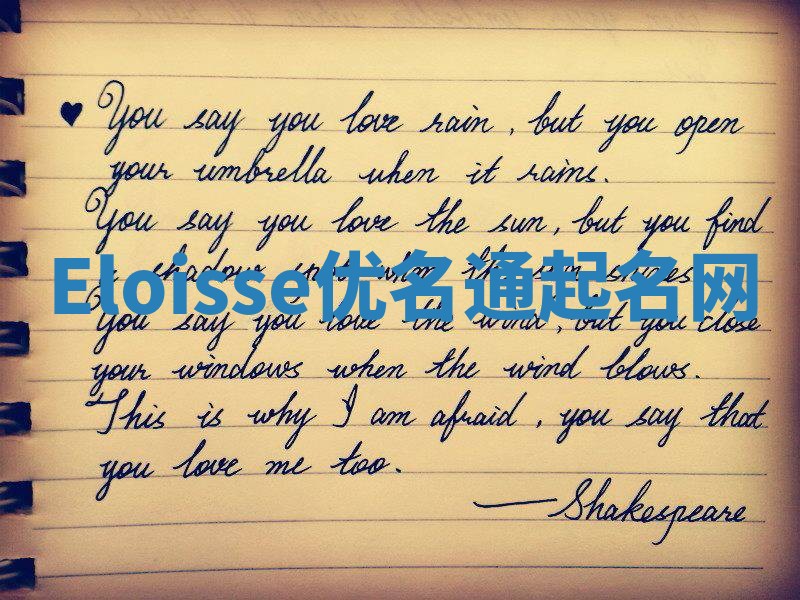 ♥ You say you love rain, but you open
your umbrella when it rains.
You say you love the sun, but you find
a shadow spot when the sun shines.
Eloisse优名通起名网
You say you love the wind, but you close
your windows when the wind blows.
This is why I am afraid, you say that
you love me too.
—Shakespeare